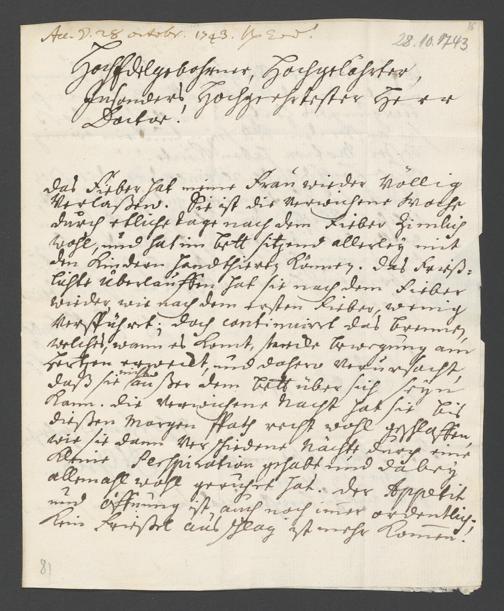 Acc. d. 28 octobr. 1743.
28.10.1743
HochEdelgebohrner, Hochgelährter,
Insonders Hochgeehrtester Herr
Doctor!
Das Fieber hat meine Frau wieder völlig
verlaßen. Sie ist die verwichene Woche
durch etliche tage nach dem Fieber zimlich
wohl, und hat im bett sitzend allerley mit
den Kindern handthieren können. Das
überlauffen hat sie nach dem Fieber
wieder, wie nach dem ersten Fieber, wenig
verspührt; doch continuirt das brennen,
welches, wann es komt, bewegung am
Hertzen erweckt, und dahero verursacht,
daß sie nicht außer dem bett über sich seyn
kann. Die verwichene Nacht hat sie bis
dießen Morgen spath recht wohl geschlaffen,
wie sie dann verschiedene Nächte durch eine
kleine Perspiration gehabt und dabey
allemahl wohl geruht hat. Der Appetit
und öffnung ist auch noch immer ordentlich;
kein Frießel ausschlag ist mehr kommen.